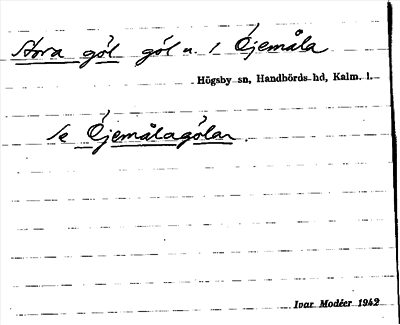 Stora göl göl n. / Öjemåla
Högsby sn, Handbörds hd, Kalm. l.
se Öjemålagölar.
Ivar Modéer 1942